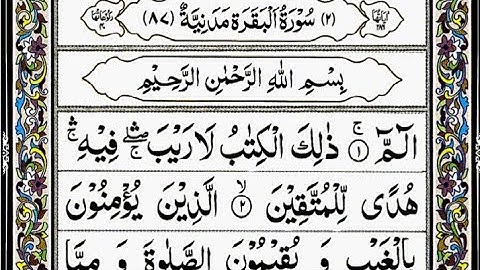 (٢) سُوْرَةُ الْبَقَرَةِ مَدَنِيَّةٌ (٨٧)
بِسْمِ اللّٰهِ الرَّحْمٰنِ الرَّحِيْمِ
الٓمّٓ ۚ ١ ذٰلِكَ الْكِتٰبُ لَا رَيْبَ ۛۖ فِيْهِ ۛۚ
هُدًى لِّلْمُتَّقِيْنَ ۙ ٢ الَّذِيْنَ يُؤْمِنُوْنَ
بِالْغَيْبِ وَ يُقِيْمُوْنَ الصَّلٰوةَ وَ مِمَّا